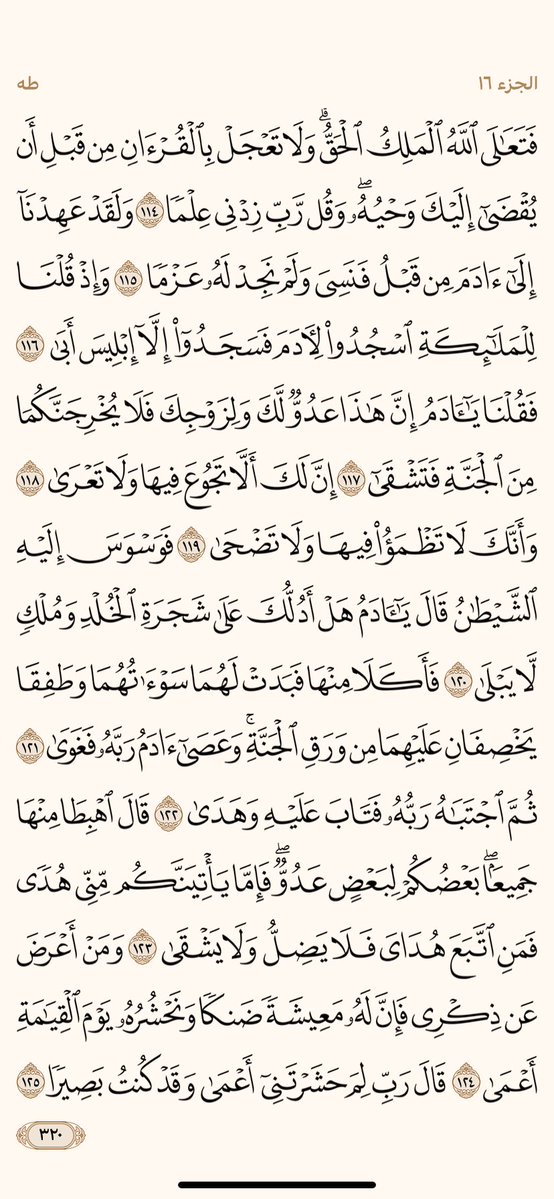 الجزء ١٦
طه
فَتَعَٰلَى ٱللَّهُ ٱلْمَلِكُ ٱلْحَقُّ ۗ وَلَا تَعْجَلْ بِٱلْقُرْءَانِ مِن قَبْلِ أَن
يُقْضَىٰٓ إِلَيْكَ وَحْيُهُۥ ۖ وَقُل رَّبِّ زِدْنِى عِلْمًا ١١٤ وَلَقَدْ عَهِدْنَآ
إِلَىٰٓ ءَادَمَ مِن قَبْلُ فَنَسِىَ وَلَمْ نَجِدْ لَهُۥ عَزْمًا ١١٥ وَإِذْ قُلْنَا
لِلْمَلَٰٓئِكَةِ ٱسْجُدُوا۟ لِـَٔادَمَ فَسَجَدُوٓا۟ إِلَّآ إِبْلِيسَ أَبَىٰ ١١٦
فَقُلْنَا يَٰٓـَٔادَمُ إِنَّ هَٰذَا عَدُوٌّ لَّكَ وَلِزَوْجِكَ فَلَا يُخْرِجَنَّكُمَا
مِنَ ٱلْجَنَّةِ فَتَشْقَىٰٓ ١١٧ إِنَّ لَكَ أَلَّا تَجُوعَ فِيهَا وَلَا تَعْرَىٰ ١١٨
وَأَنَّكَ لَا تَظْمَؤُا۟ فِيهَا وَلَا تَضْحَىٰ ١١٩ فَوَسْوَسَ إِلَيْهِ
ٱلشَّيْطَٰنُ قَالَ يَٰٓـَٔادَمُ هَلْ أَدُلُّكَ عَلَىٰ شَجَرَةِ ٱلْخُلْدِ وَمُلْكٍ
لَّا يَبْلَىٰ ١٢٠ فَأَكَلَا مِنْهَا فَبَدَتْ لَهُمَا سَوْءَٰتُهُمَا وَطَفِقَا
يَخْصِفَانِ عَلَيْهِمَا مِن وَرَقِ ٱلْجَنَّةِ ۚ وَعَصَىٰٓ ءَادَمُ رَبَّهُۥ فَغَوَىٰ ١٢١
ثُمَّ ٱجْتَبَٰهُ رَبُّهُۥ فَتَابَ عَلَيْهِ وَهَدَىٰ ١٢٢ قَالَ ٱهْبِطَا مِنْهَا
جَمِيعًۢا ۖ بَعْضُكُمْ لِبَعْضٍ عَدُوٌّ ۖ فَإِمَّا يَأْتِيَنَّكُم مِّنِّى هُدًى
فَمَنِ ٱتَّبَعَ هُدَاىَ فَلَا يَضِلُّ وَلَا يَشْقَىٰ ١٢٣ وَمَنْ أَعْرَضَ
عَن ذِكْرِى فَإِنَّ لَهُۥ مَعِيشَةً ضَنكًا وَنَحْشُرُهُۥ يَوْمَ ٱلْقِيَٰمَةِ
أَعْمَىٰ ١٢٤ قَالَ رَبِّ لِمَ حَشَرْتَنِىٓ أَعْمَىٰ وَقَدْ كُنتُ بَصِيرًا ١٢٥
٣٢٠